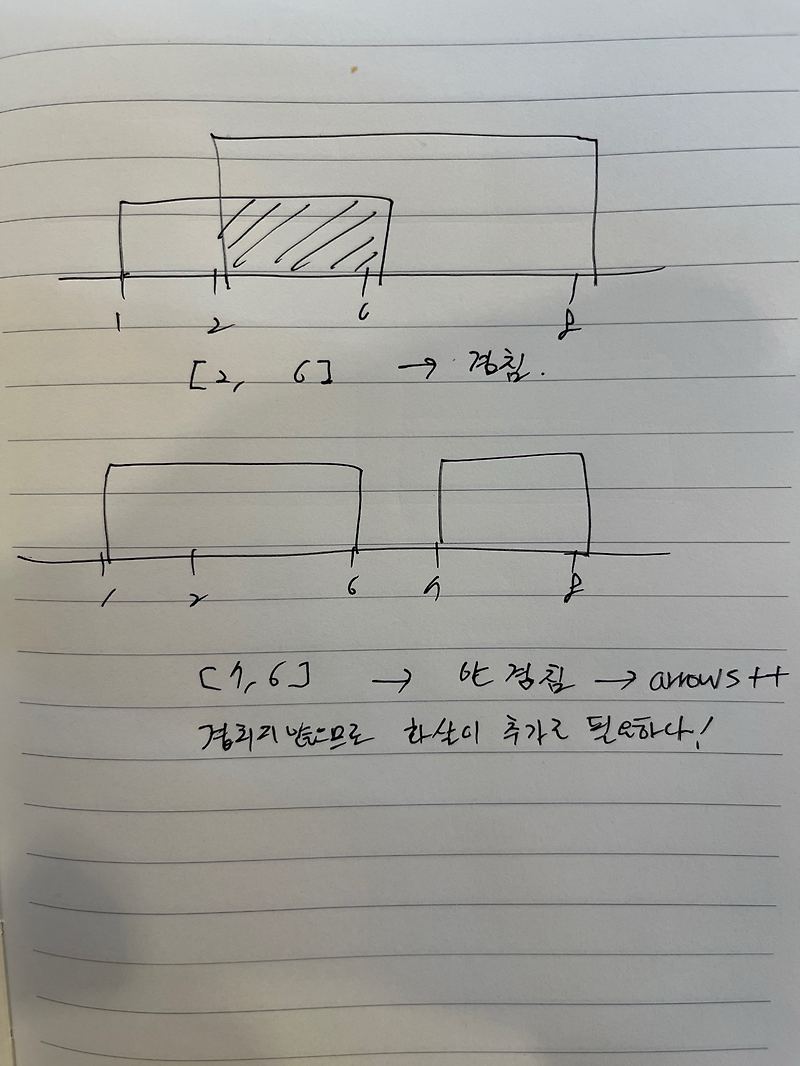 1 2 6 8
[2, 6] → 겹침.
1 2 6 7 8
[7, 6] → 안 겹침 → arrows++
겹치지 않으므로 화살이 추가로 필요하다!